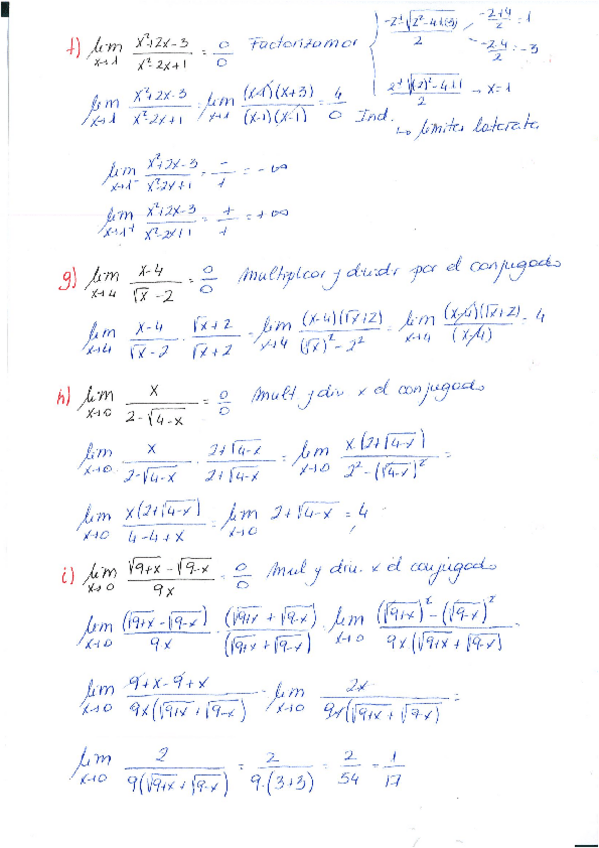 f) lim x→1 (x²+2x-3)/(x²-2x+1) = 0/0 Factorizamos
(-2±√(2²-4·1·(-3)))/2 (-2+4)/2 = 1
(-2-4)/2 = -3
(2±√((2)²-4·1·1))/2 → x=1
lim x→1 (x²+2x-3)/(x²-2x+1) = lim x→1 (x-1)(x+3)/(x-1)(x-1) = 4/0 Ind.
↳ límites laterales
lim x→1⁻ (x²+2x-3)/(x²-2x+1) = -/+ = -∞
lim x→1⁺ (x²+2x-3)/(x²-2x+1) = +/+ = +∞
g) lim x→4 (x-4)/(√x-2) = 0/0 Multiplicar y dividir por el conjugado
lim x→4 (x-4)/(√x-2) · (√x+2)/(√x+2) = lim x→4 (x-4)(√x+2)/((√x)²-2²) = lim x→4 (x-4)(√x+2)/(x-4) = 4
h) lim x→0 x/(2-√(4-x)) = 0/0 Mult y div x el conjugado
lim x→0 x/(2-√(4-x)) · (2+√(4-x))/(2+√(4-x)) = lim x→0 x(2+√(4-x))/(2²-(√(4-x))²) =
lim x→0 x(2+√(4-x))/(4-4+x) = lim x→0 2+√(4-x) = 4
i) lim x→0 (√(9+x)-√(9-x))/9x = 0/0 Mul y div. x el conjugado
lim x→0 (√(9+x)-√(9-x))/9x · (√(9+x)+√(9-x))/(√(9+x)+√(9-x)) = lim x→0 ((√(9+x))²-(√(9-x))²)/(9x(√(9+x)+√(9-x))) =
lim x→0 (9+x-9+x)/(9x(√(9+x)+√(9-x))) = lim x→0 2x/(9x(√(9+x)+√(9-x))) =
lim x→0 2/(9(√(9+x)+√(9-x))) = 2/(9·(3+3)) = 2/54 = 1/17